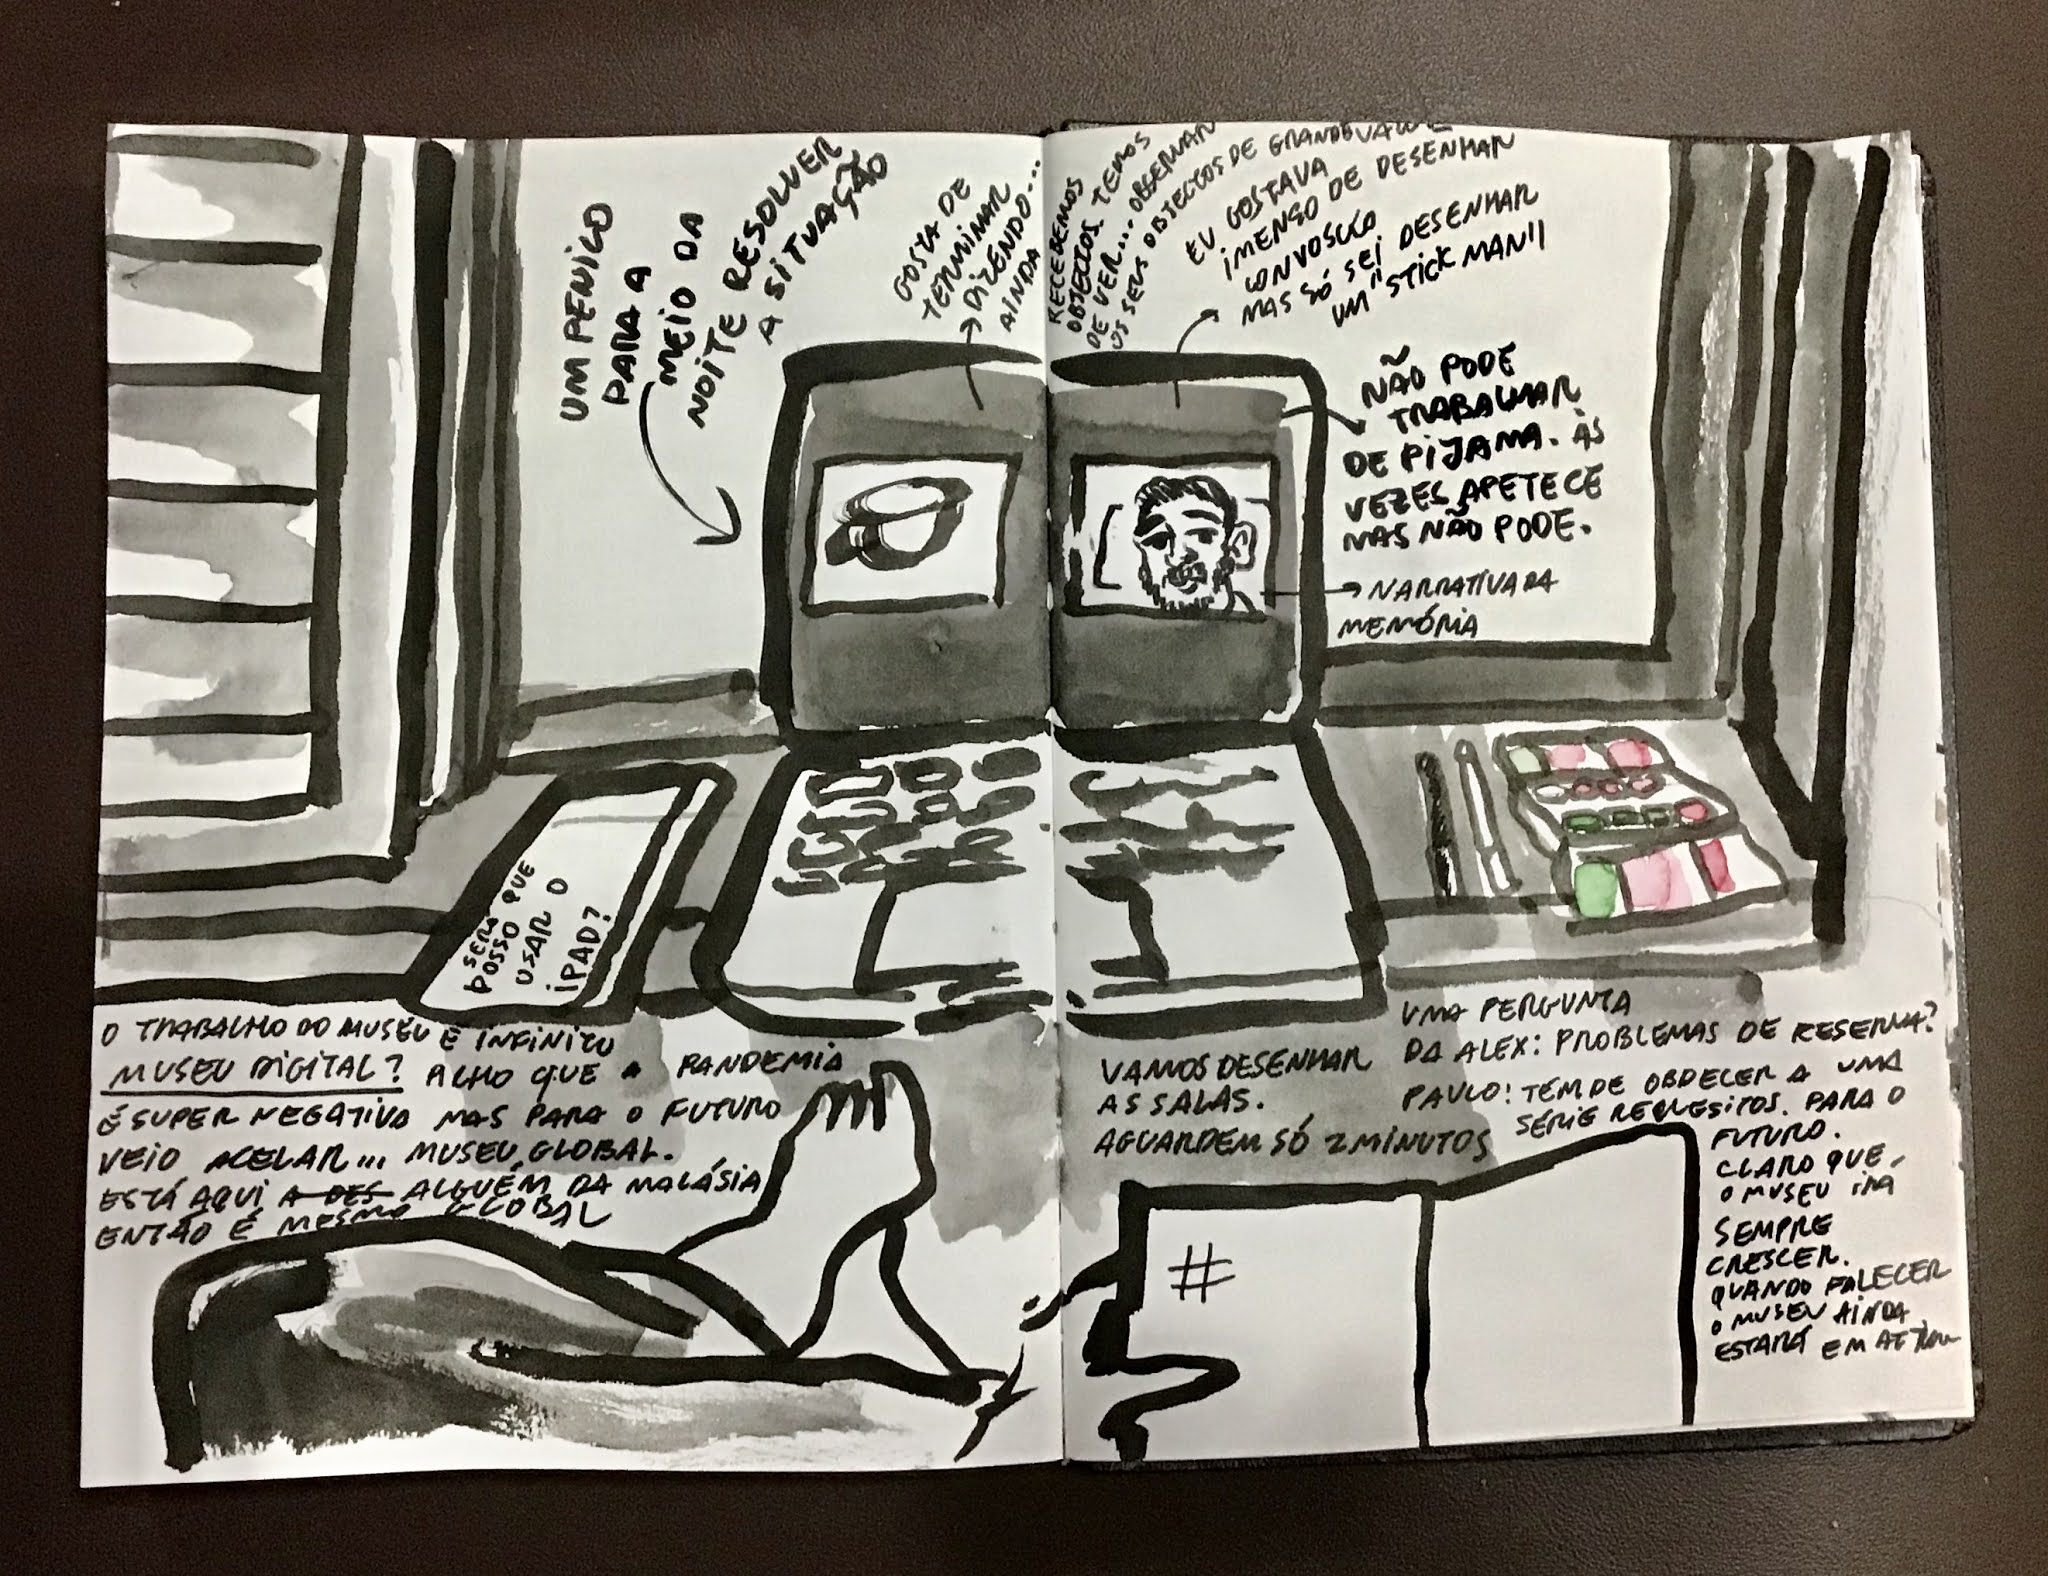 UM PENICO
PARA A
MEIO DA
NOITE RESOLVER
A SITUAÇÃO
GOSTA DE
TERMINAR
DIZENDO...
AINDA
RECEBEMOS
OBJECTOS. TEMOS
DE VER... OBSERVAR
OS SEUS OBJECTOS DE GRANDE VALOR
EU GOSTAVA
IMENSO DE DESENHAR
CONVOSCO
MAS SÓ SEI DESENHAR
UM "STICK MAN"
NÃO PODE
TRABALHAR
DE PIJAMA. ÀS
VEZES APETECE
MAS NÃO PODE.
NARRATIVA DA
MEMÓRIA
SERÁ QUE
POSSO QUE
USAR O
IPAD?
O TRABALHO DO MUSEU É INFINITO
MUSEU DIGITAL? ACHO QUE A PANDEMIA
É SUPER NEGATIVA MAS PARA O FUTURO
VEIO ACELAR... MUSEU GLOBAL.
ESTÁ AQUI A DES ALGUÉM DA MALÁSIA
ENTÃO É MESMO GLOBAL
VAMOS DESENHAR
AS SALAS.
AGUARDEM SÓ 2 MINUTOS
UMA PERGUNTA
DA ALEX: PROBLEMAS DE RESERVA?
PAULO: TEM DE OBDECER A UMA
SÉRIE REQUESITOS. PARA O
FUTURO.
CLARO QUE
O MUSEU IRÁ
SEMPRE
CRESCER.
QUANDO FALECER
O MUSEU AINDA
ESTARÁ EM
#